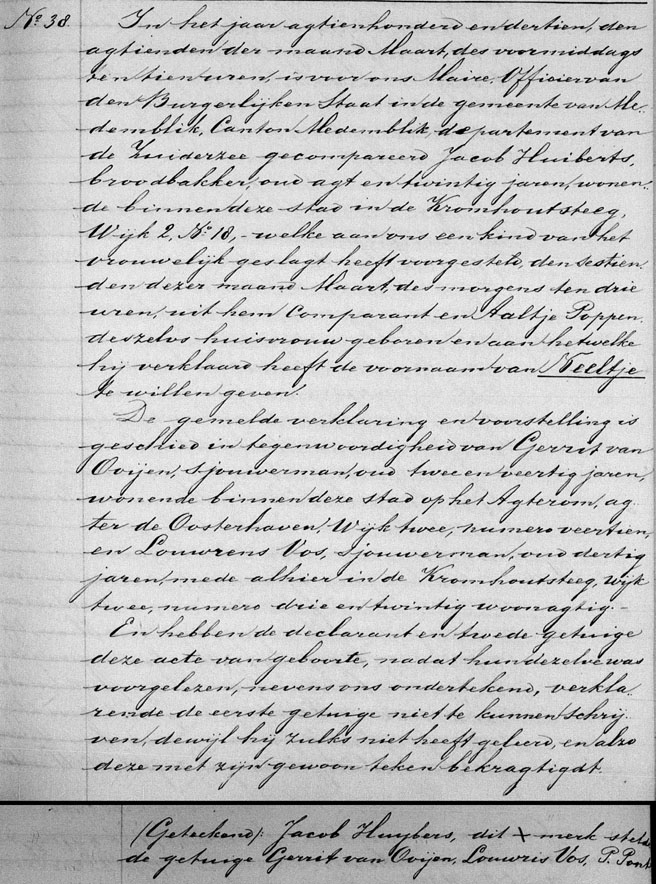 No. 38. In het jaar agtienhonderd en dertien, den
agtienden der maand Maart, des voormiddags
ten tien uren, is voor ons Maire, Officier van
den Burgerlijken Staat in de gemeente van Me-
demblik, Canton Medemblik, departement van
de Zuiderzee gecompareerd Jacob Huiberts,
broodbakker, oud agt en twintig jaren, wonen-
de binnen deze stad in de Kromhoutsteeg,
Wijk 2, No. 18, - welke aan ons een kind van het
vrouwelijk geslagt heeft voorgesteld, den sestien-
den dezer maand Maart, des morgens ten drie
uren, uit hem Comparant en Aaltje Poppen,
deszelvs huisvrouw geboren en aan hetwelke
hij verklaard heeft de voornaam van Neeltje
te willen geven.
De gemelde verklaring en voorstelling is
geschied in tegenwoordigheid van Gerrit van
Ovijen, sjouwerman, oud twee en veertig jaren,
wonende binnen deze stad op het Agterom, ag-
ter de Oosterhaven, Wijk twee, numero veertien,
en Louwrens Vos, sjouwerman, oud dertig
jaren, mede alhier in de Kromhoutsteeg, wijk
twee, numero drie en twintig woonagtig. -
En hebben de declarant en twede getuige
deze acte van geboorte, nadat hun dezelve was
voorgelezen, nevens ons ondertekend, verkla-
rende de eerste getuige niet te kunnen schrij-
ven, dewijl hij zulks niet heeft geleerd, en alzo
deze met zijn gewoon teken bekragtigdt.
(Geteekend): Jacob Huybers, dit + merk steld
de getuige Gerrit van Ovijen, Louwris Vos, P. Pont